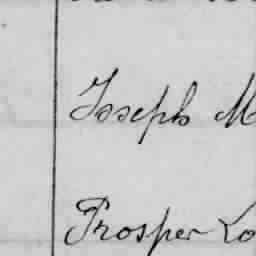 Joseph M
Prosper Lo